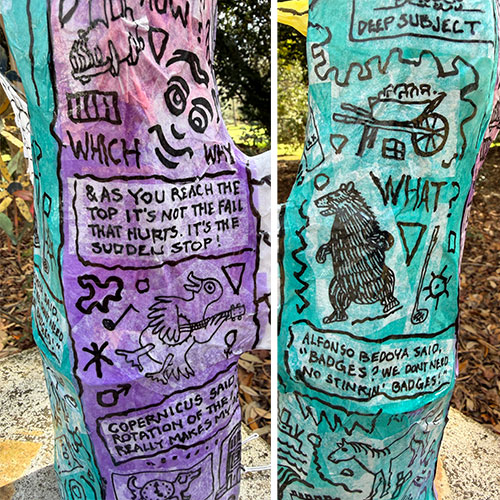 HOW?
WHICH WHY
& AS YOU REACH THE
TOP IT'S NOT THE FALL
THAT HURTS. IT'S THE
SUDDEN STOP!
COPERNICUS SAID,
ROTATION OF THE
REALLY MAKES MY
SAID,
NEED
DEEP SUBJECT
WHAT?
ALFONSO BEDOYA SAID,
"BADGES? WE DONT NEED
NO STINKIN' BADGES!"